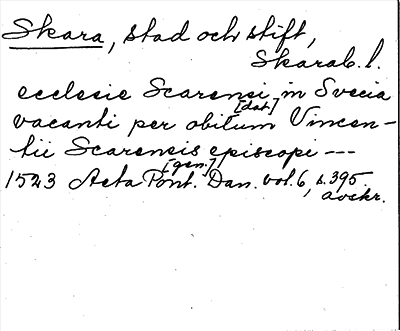 Skara, stad och stift,
Skarab. l.
ecclesie Scarensi [dat.] in Svecia
vacanti per obitum Vincen-
tii Scarensis [gen.] episcopi ---
1523 Acta Pont. Dan. vol. 6, s. 395.
avskr.